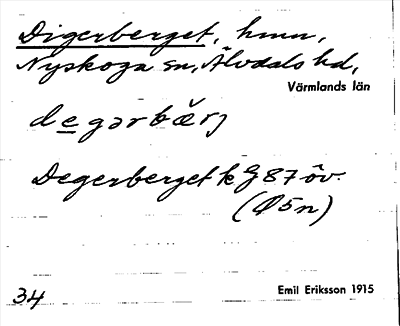 Digerberget, hmn,
Nyskoga sn, Älvdals hd,
Värmlands län
degərbærj
Degerberget k G87 öv.
(Ø5n)
34
Emil Eriksson 1915